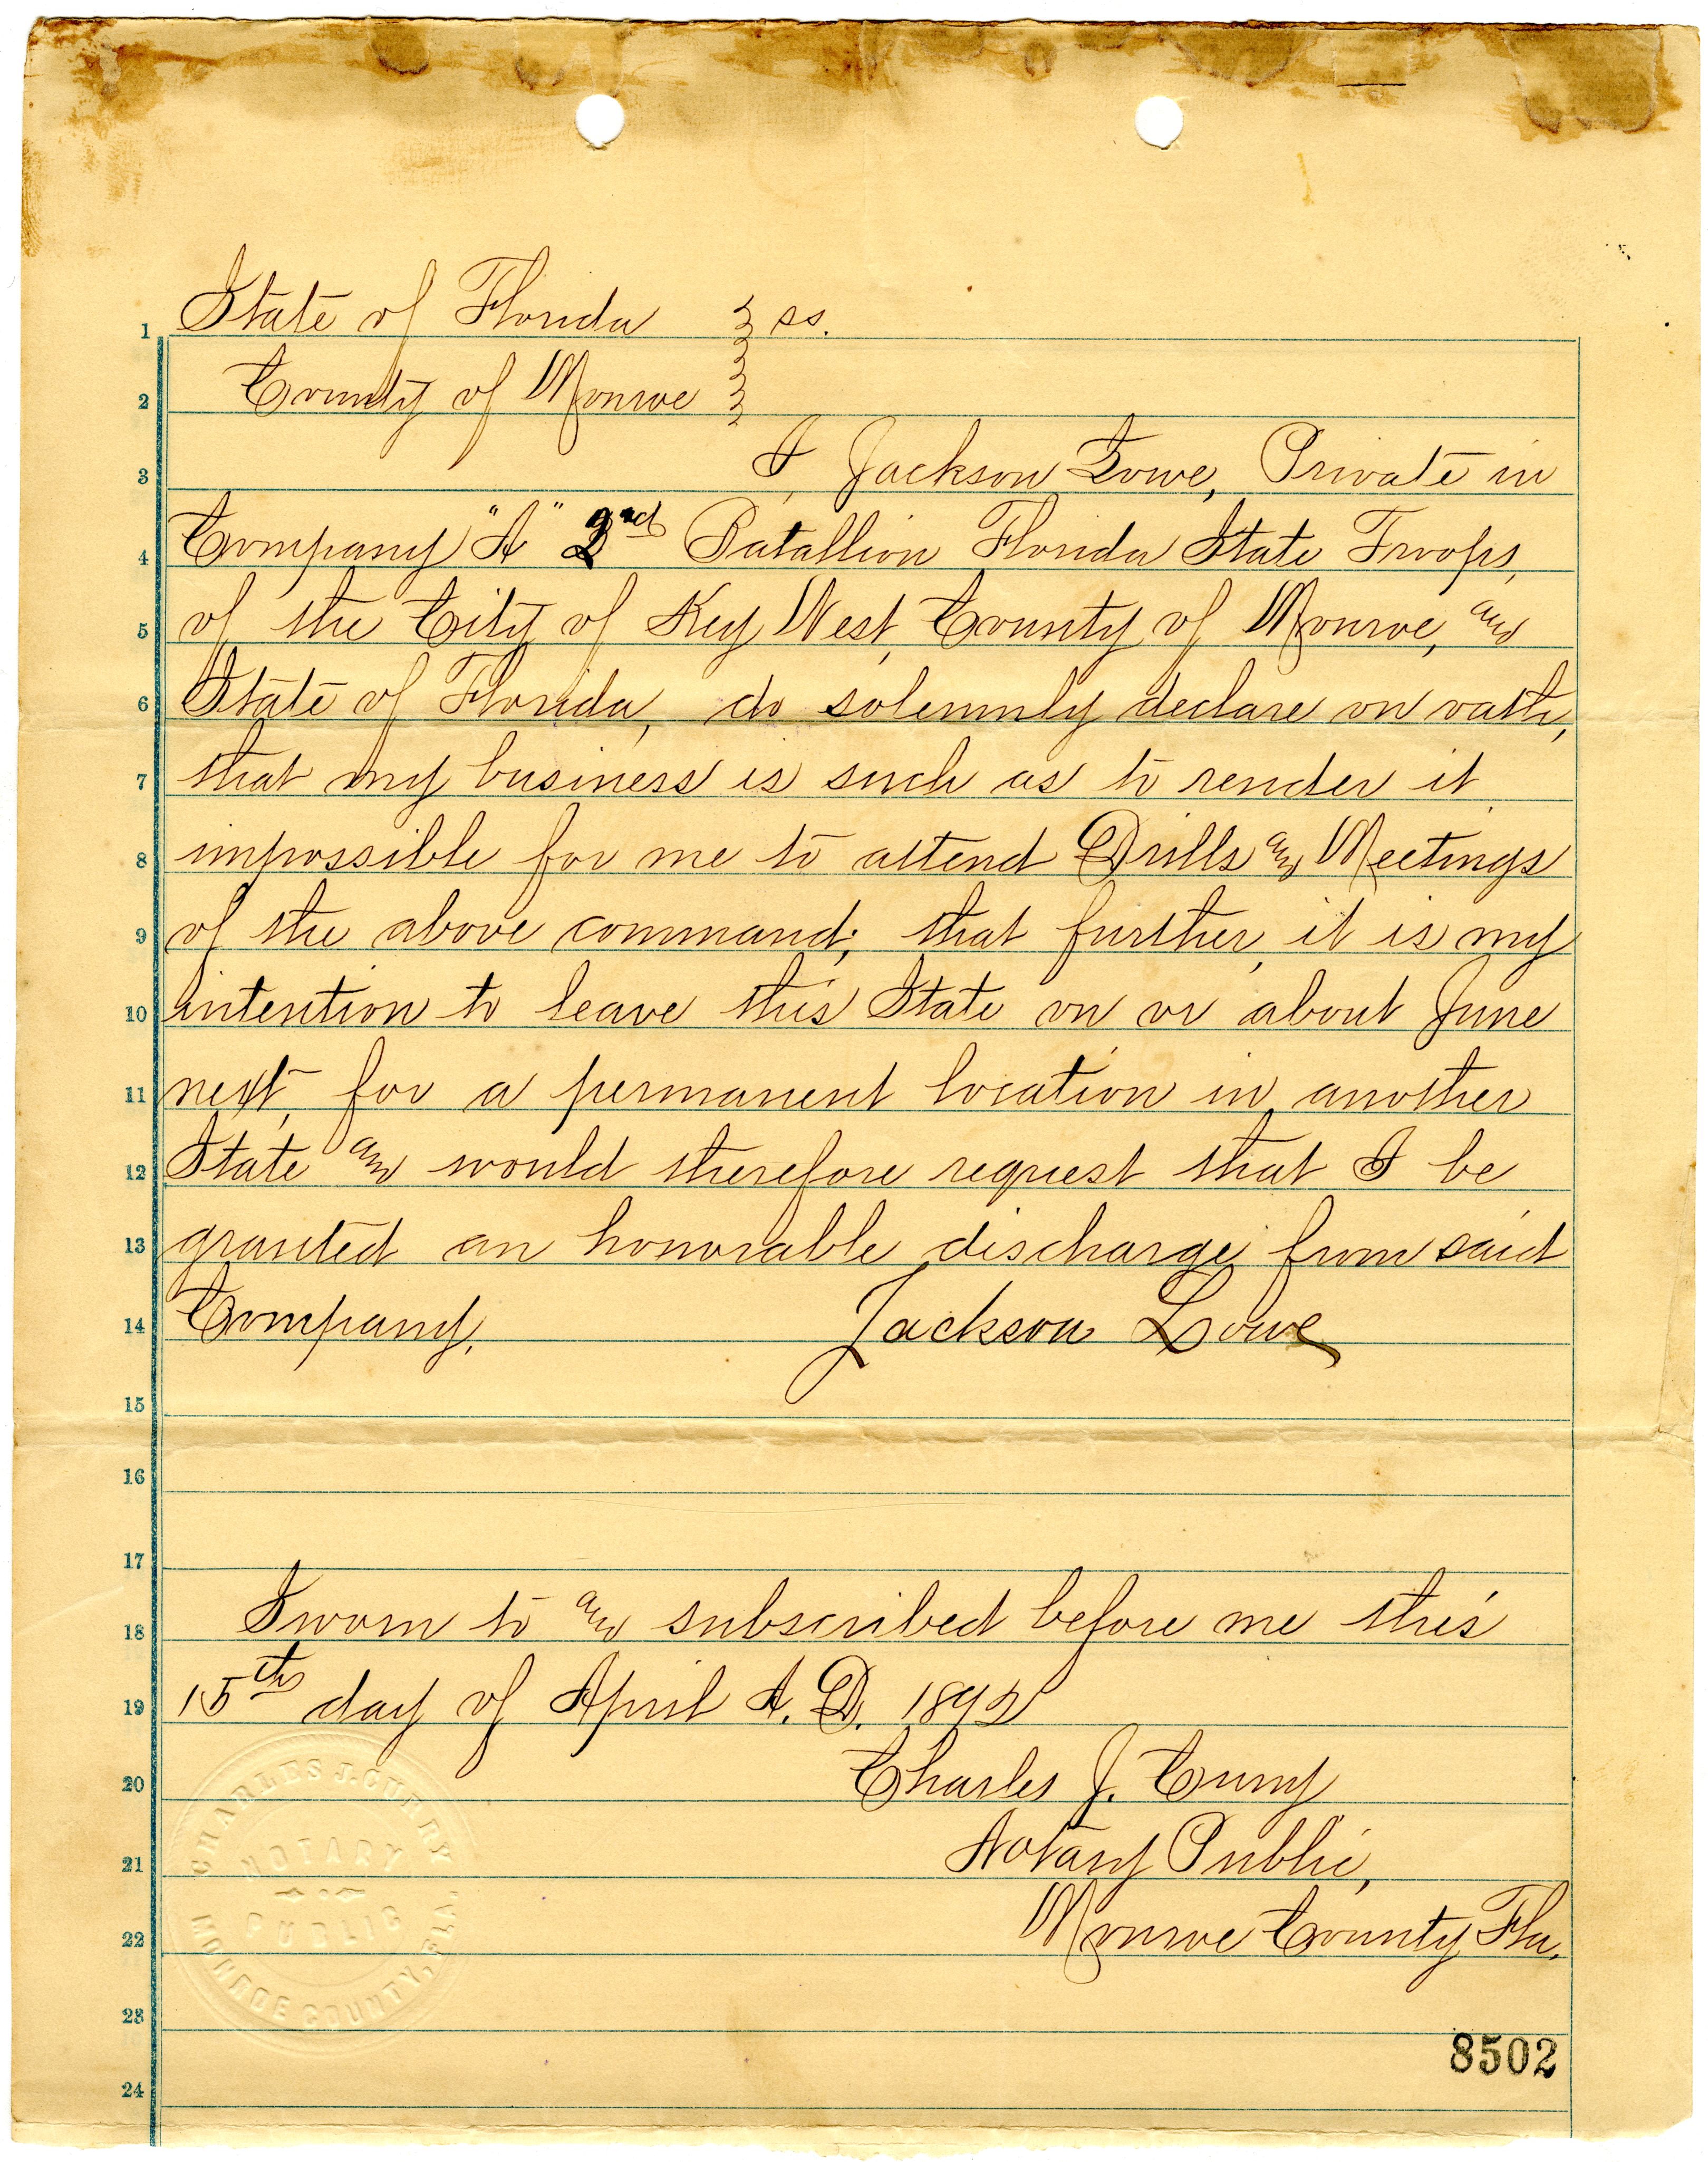 State of Florida } ss.
County of Monroe }
I, Jackson Lowe, Private in
Company "A" 2nd Batallion Florida State Troops,
of the City of Key West, County of Monroe, and
State of Florida, do solemnly declare on oath,
that my business is such as to render it
impossible for me to attend Drills and Meetings
of the above command; that further, it is my
intention to leave this State on or about June
next, for a permanent location in another
State and would therefore request that I be
granted an honorable discharge from said
Company.
Jackson Lowe
Sworn to and subscribed before me this
15th day of April A.D. 1892
Charles J. Curry
Notary Public,
Monroe County Fla.
CHARLES J. CURRY
NOTARY
PUBLIC
MONROE COUNTY, FLA.
8502
1
2
3
4
5
6
7
8
9
10
11
12
13
14
15
16
17
18
19
20
21
22
23
24